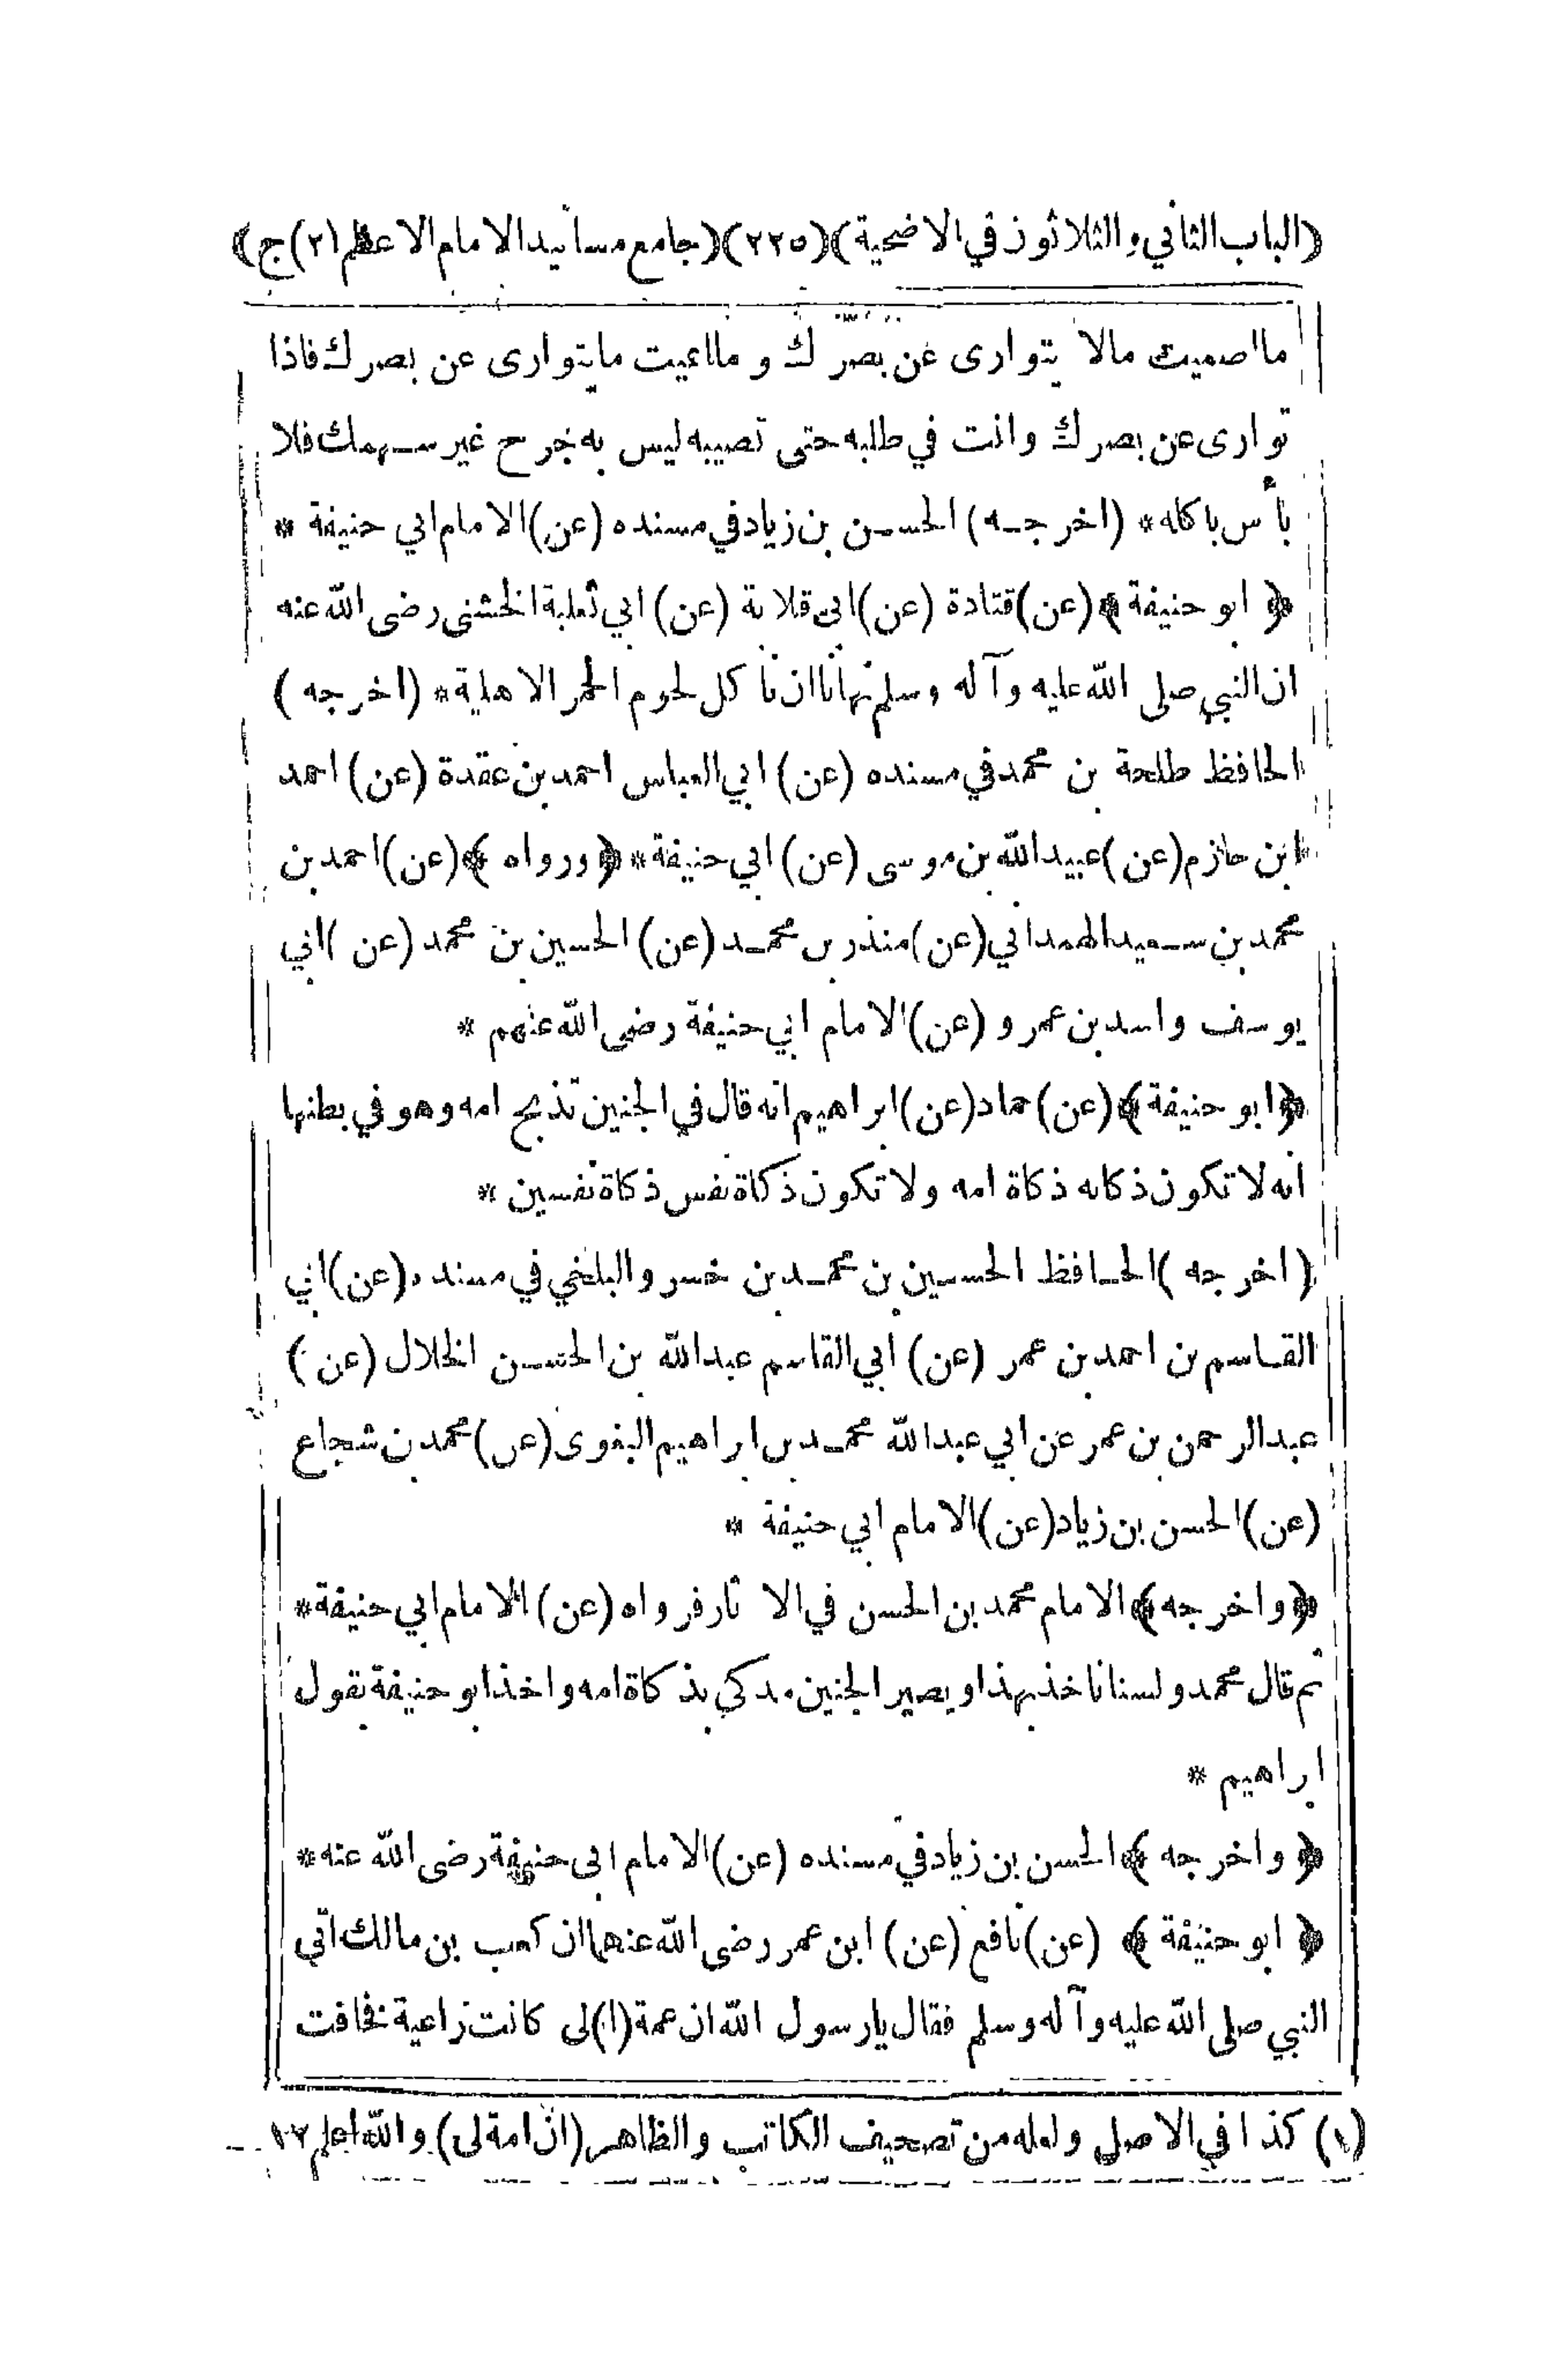 (الباب الثاني والثلاثون في الاضحية) (٢٢٥) (جامع مسانيد الامام الاعظم (٢) ج)
ما اصميت مالا يتوارى عن بصرك وما انميت مايتوارى عن بصرك فاذا
توارى عن بصرك وانت في طلبه حتى تصيبه ليس به جرح غير سهمك فلا
بأس باكله * (اخرجه) الحسن بن زياد في مسنده (عن) الامام ابي حنيفة *
﴿ ابو حنيفة ﴾ (عن) قتادة (عن) ابى قلابة (عن) ابي ثعلبة الخشنى رضى الله عنه
ان النبي صلى الله عليه وآله وسلم نهانا ان نأكل لحوم الحمر الاهلية * (اخرجه)
الحافظ طلحة بن محمد في مسنده (عن) ابي العباس احمد بن عقدة (عن) احمد
ابن حازم (عن) عبيد الله بن موسى (عن) ابي حنيفة * ﴿ ورواه ﴾ (عن) احمد بن
محمد بن سعيد الهمداني (عن) منذر بن محمد (عن) الحسين بن محمد (عن) ابي
يوسف واسد بن عمرو (عن) الامام ابي حنيفة رضى الله عنهم *
﴿ ابو حنيفة ﴾ (عن) حماد (عن) ابراهيم انه قال في الجنين تذبح امه وهو في بطنها
انه لا تكون ذكاته ذكاة امه ولا تكون ذكاة نفس ذكاة نفسين *
(اخرجه) الحافظ الحسين بن محمد بن خسرو البلخي في مسنده (عن) ابي
القاسم بن احمد بن عمر (عن) ابي القاسم عبد الله بن الحسن الخلال (عن)
عبد الرحمن بن عمر عن ابي عبد الله محمد بن ابراهيم البغوى (عن) محمد بن شجاع
(عن) الحسن بن زياد (عن) الامام ابي حنيفة *
﴿ واخرجه ﴾ الامام محمد بن الحسن في الا ثار فرواه (عن) الامام ابي حنيفة *
ثم قال محمد ولسنا ناخذ بهذا ويصير الجنين مذكي بذكاة امه واخذ ابو حنيفة بقول
ابراهيم *
﴿ واخرجه ﴾ الحسن بن زياد في مسنده (عن) الامام ابى حنيفة رضى الله عنه *
﴿ ابو حنيفة ﴾ (عن) نافع (عن) ابن عمر رضى الله عنهما ان كعب بن مالك اتى
النبي صلى الله عليه وآله وسلم فقال يا رسول الله ان عمة (١) لى كانت راعية فخافت
(١) كذا في الاصل ولعله من تصحيف الكاتب والظاهر (ان امة لى) والله اعلم ١٢